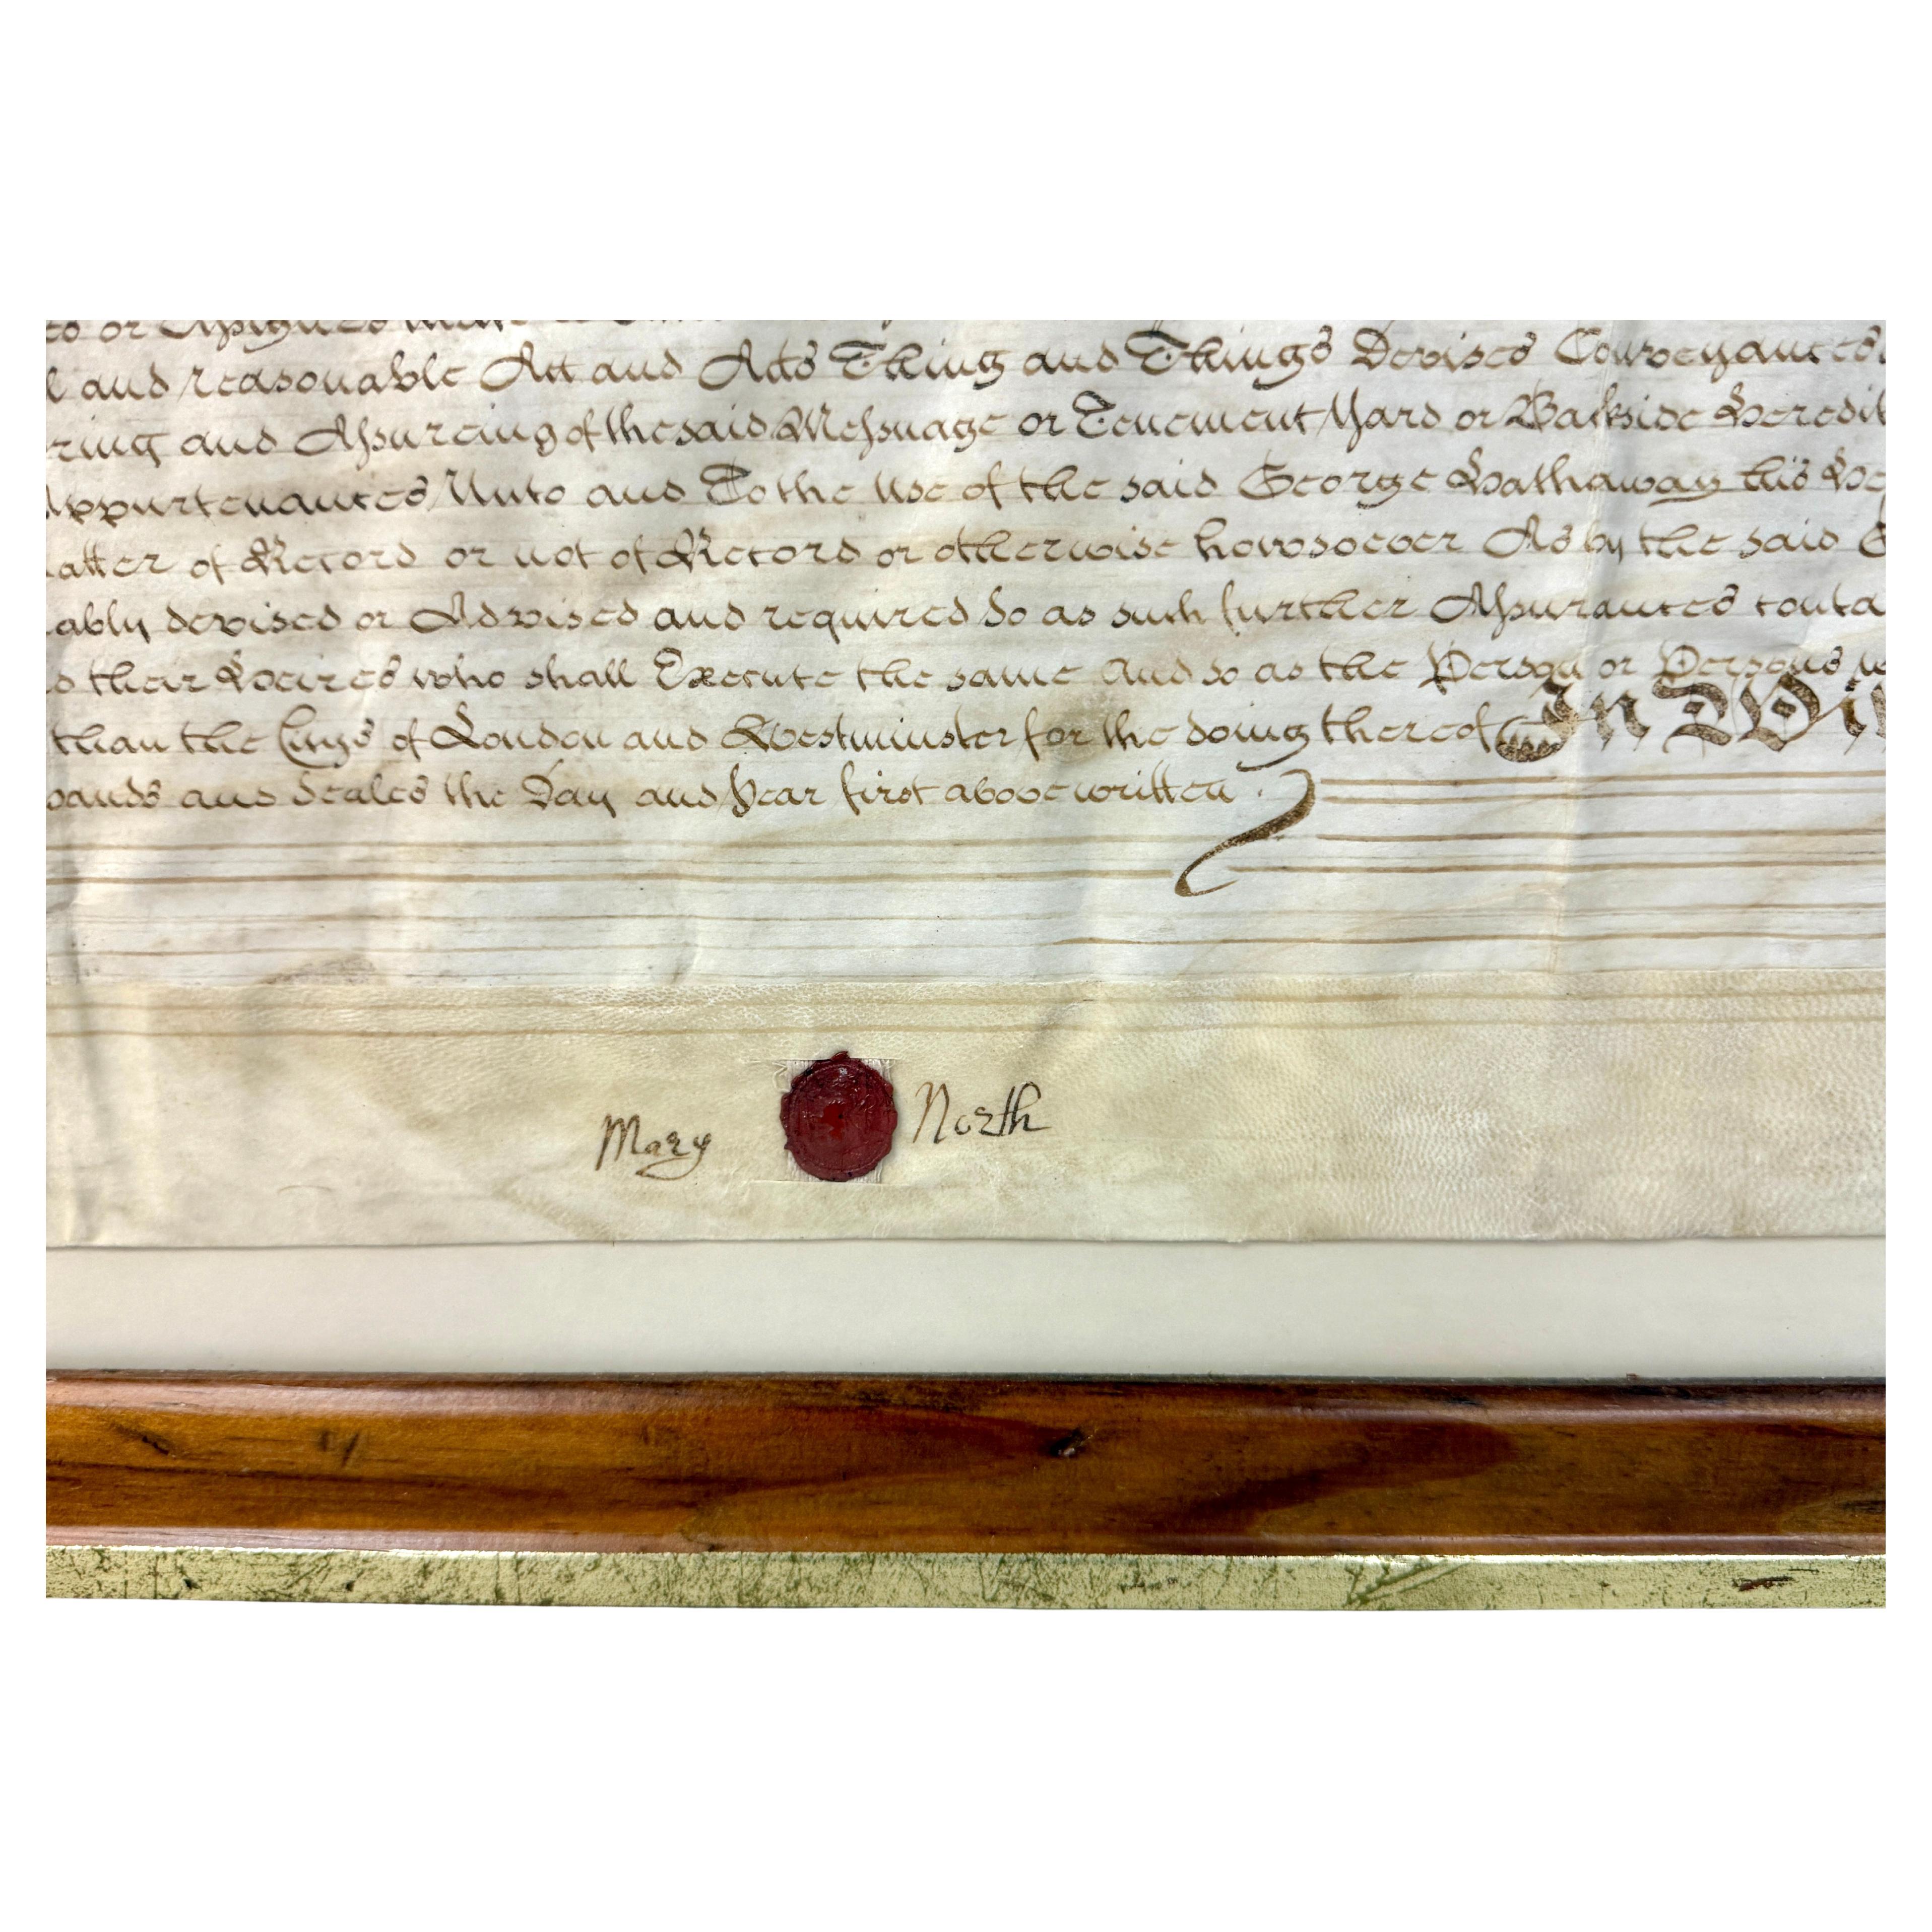 or Assignes
and reasonable Act and Acts Thing and Things Devises Conveyances
ring and Assureing of the said Messuage or Tenement Yard or Backside Heredit
Appurtenances Unto and To the Use of the said George Hathaway his He
atter of Record or not of Record or otherwise howsoever As by the said G
ably devised or Advised and required So as such further Assurances conta
their Heires who shall Execute the same And so as the Person or Persons w
than the Cittys of London and Westminster for the doing thereof In Wit
hands and Seales the Day and Year first above written .
Mary North